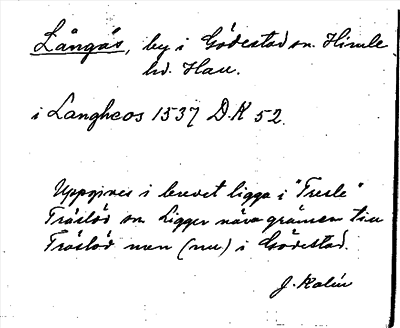 Långås, by i Gödestad sn. Himle
hd. Hall.
i Langheos 1537 D.K 52.
Uppgives i brevet ligga i "Tresle"
Träslöv sn. Ligger nära gränsen till
Träslöv men (nu) i Gödestad.
J. Kalén